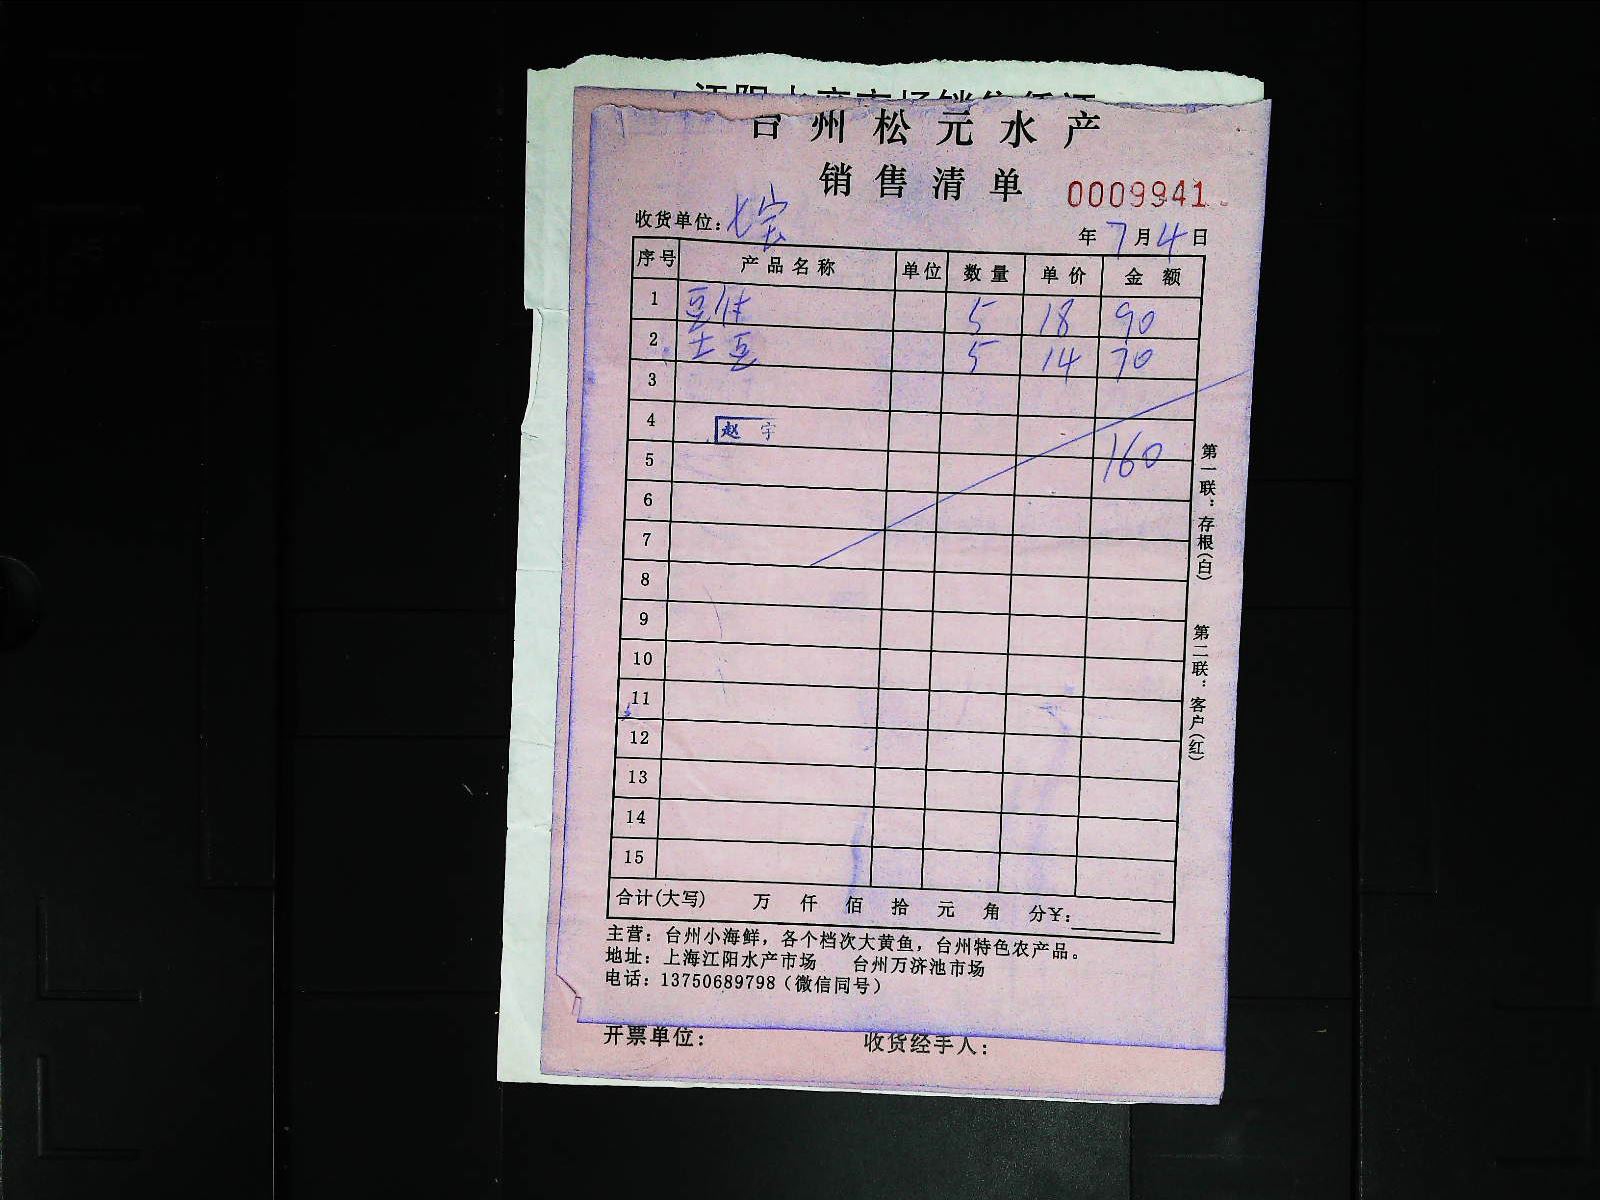 江阳水产市场销售凭证
台州松元水产
销售清单
0009941
收货单位：七宝 年7月4日
序号 产品名称 单位 数量 单价 金额
1 5 18 90
2 土豆 5 14 70
3
4 赵宇
160
5
6
7
8
9
10
11
12
13
14
15
合计(大写) 万 仟 佰 拾 元 角 分¥：
主营：台州小海鲜，各个档次大黄鱼，台州特色农产品。
地址：上海江阳水产市场 台州万济池市场
电话：13750689798（微信同号）
第一联：存根(白)
第二联：客户(红)
开票单位： 收货经手人：